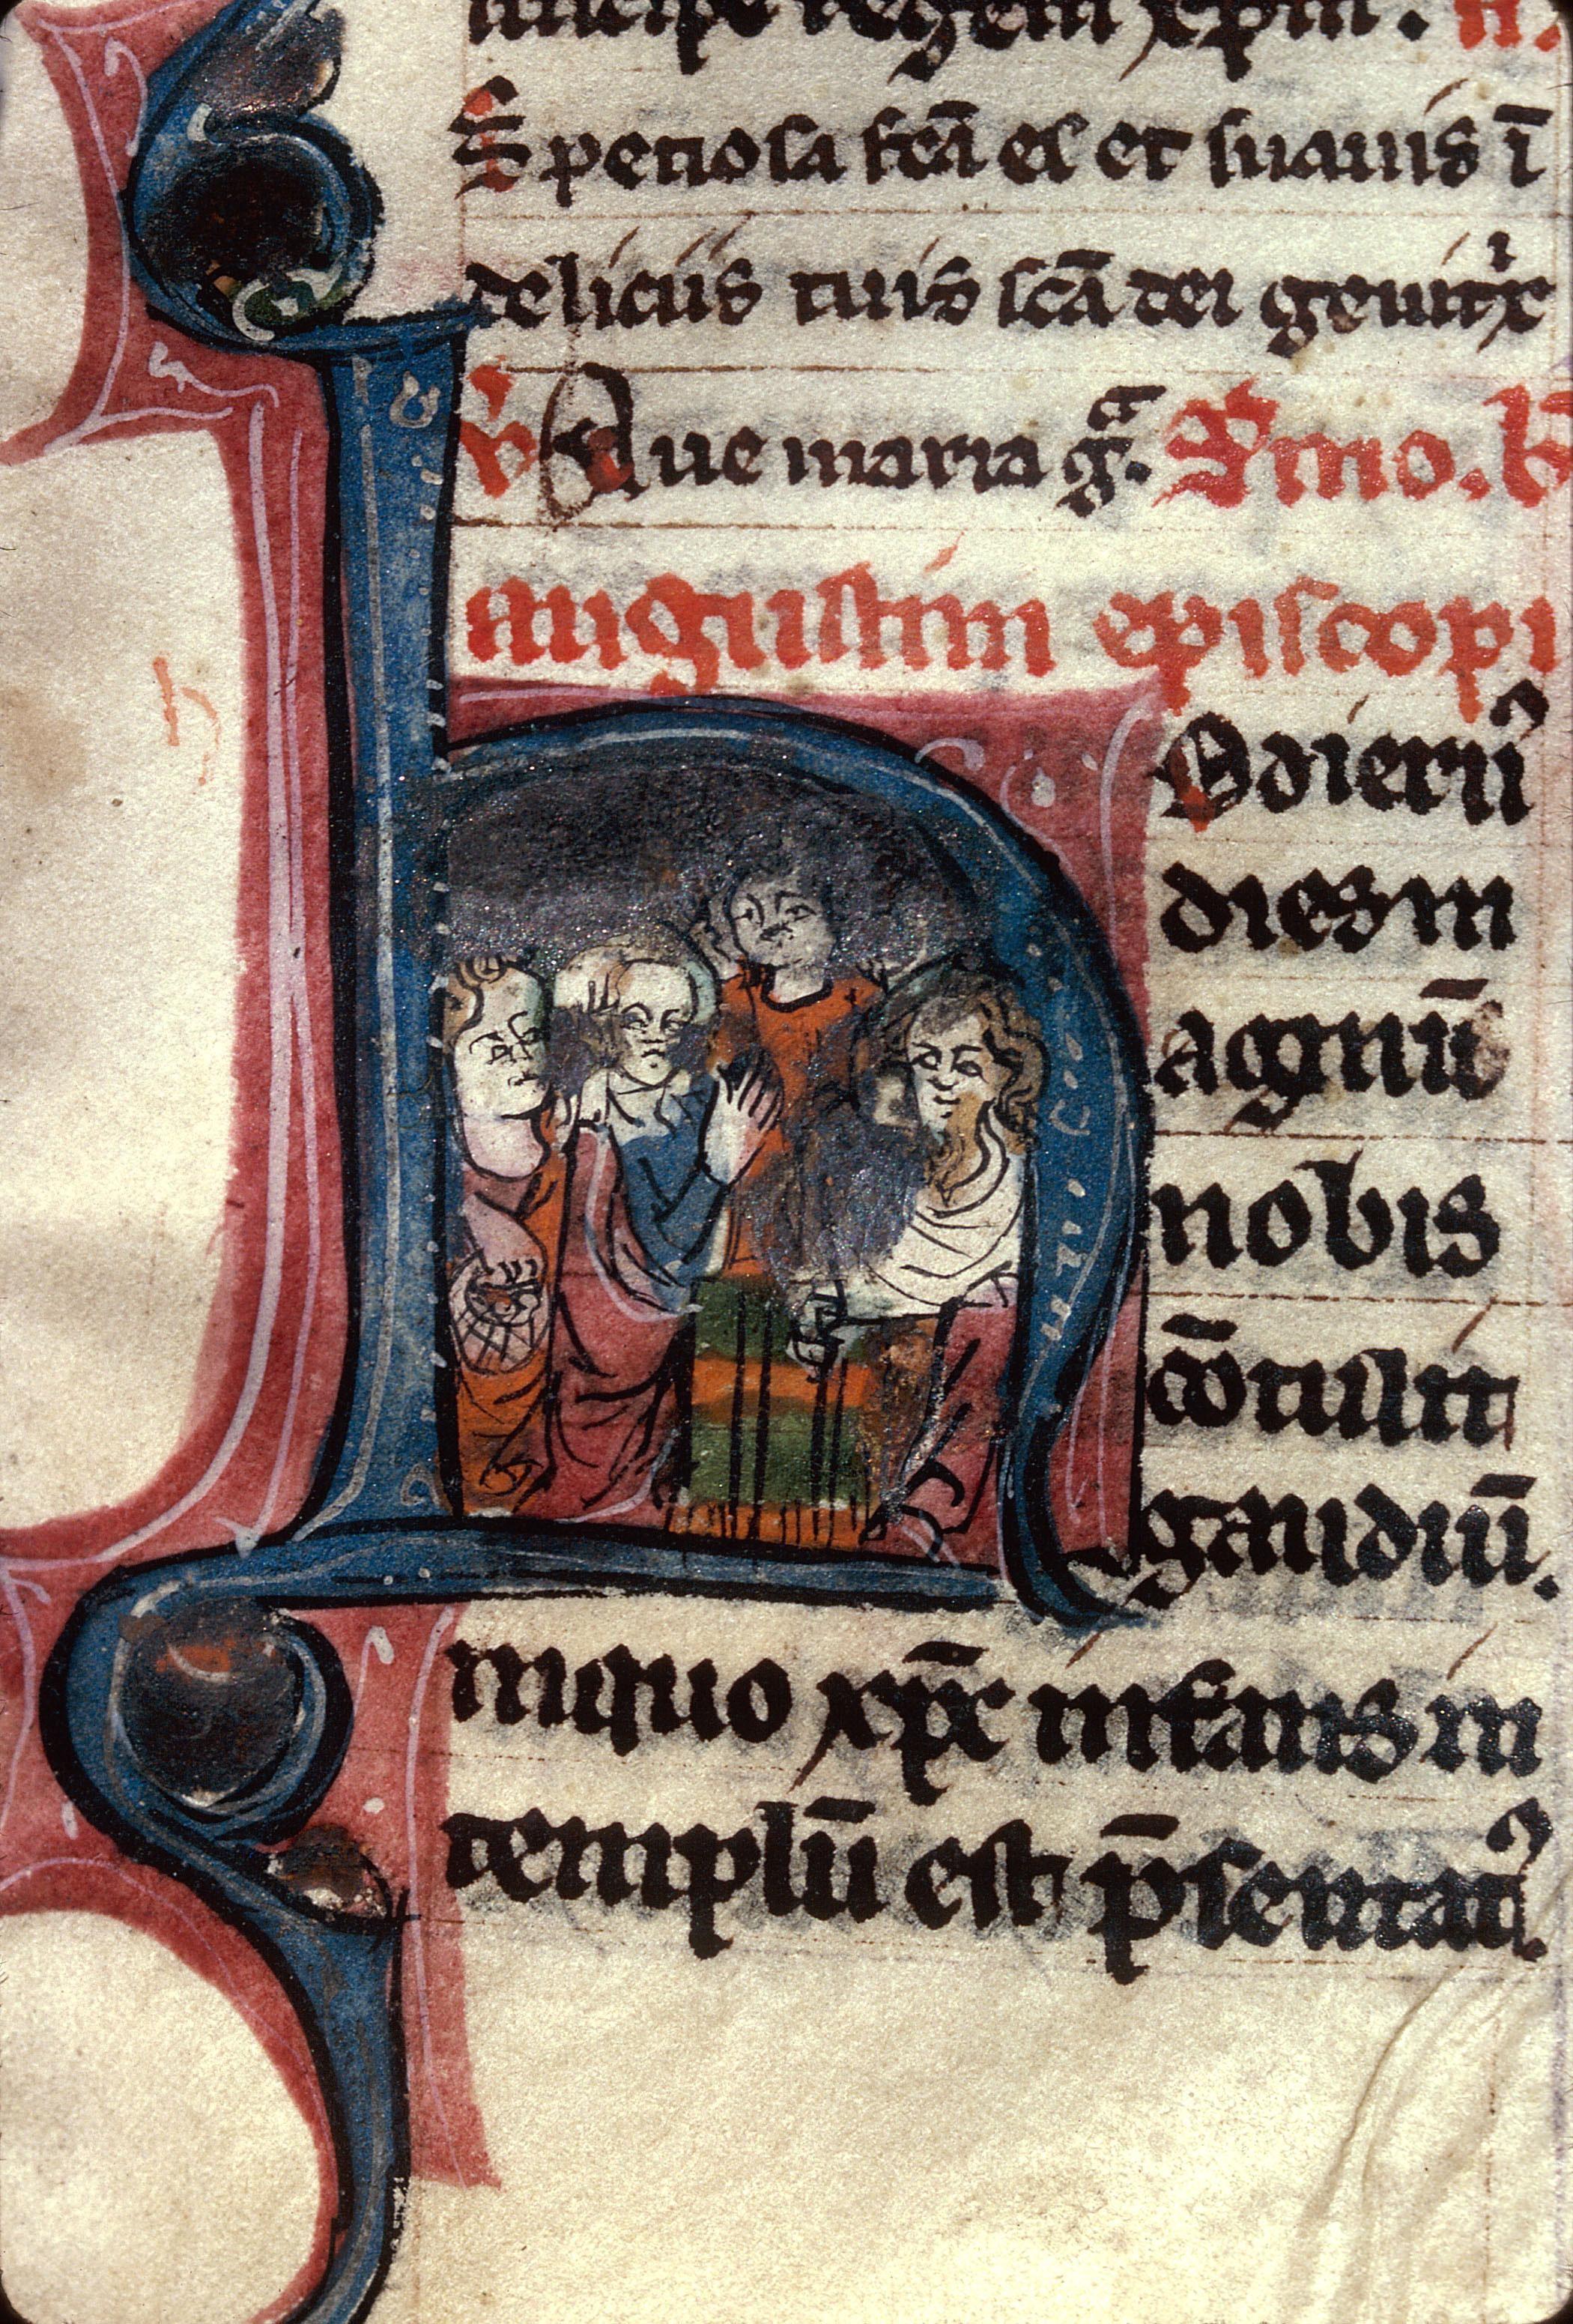 suscipe regem xp̄m. n.
Speciosa fcā es et suauis ī
deliciis tuis scā dei genitͥx
V Aue maria gͣ. Sermo. b
augustini episcopi
hOdiernꝰ
dies m
agnū
nobis
cōtulit
gaudiū.
inquo xp̄c infans in
templū est p̄sentatꝰ.
h